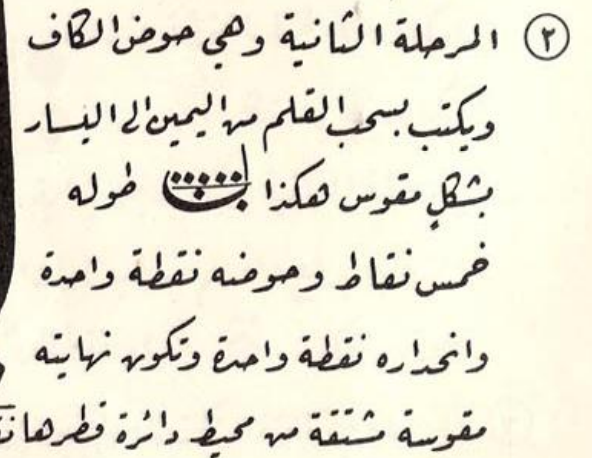 ٢ المرحلة الثانية وهي حوض الكاف
ويكتب بسحب القلم من اليمين الى اليسار
بشكلٍ مقوس هكذا طوله
خمس نقاط وحوضه نقطة واحدة
وانحداره نقطة واحدة وتكون نهايته
مقوسة مشتقة من محيط دائرة قطرها